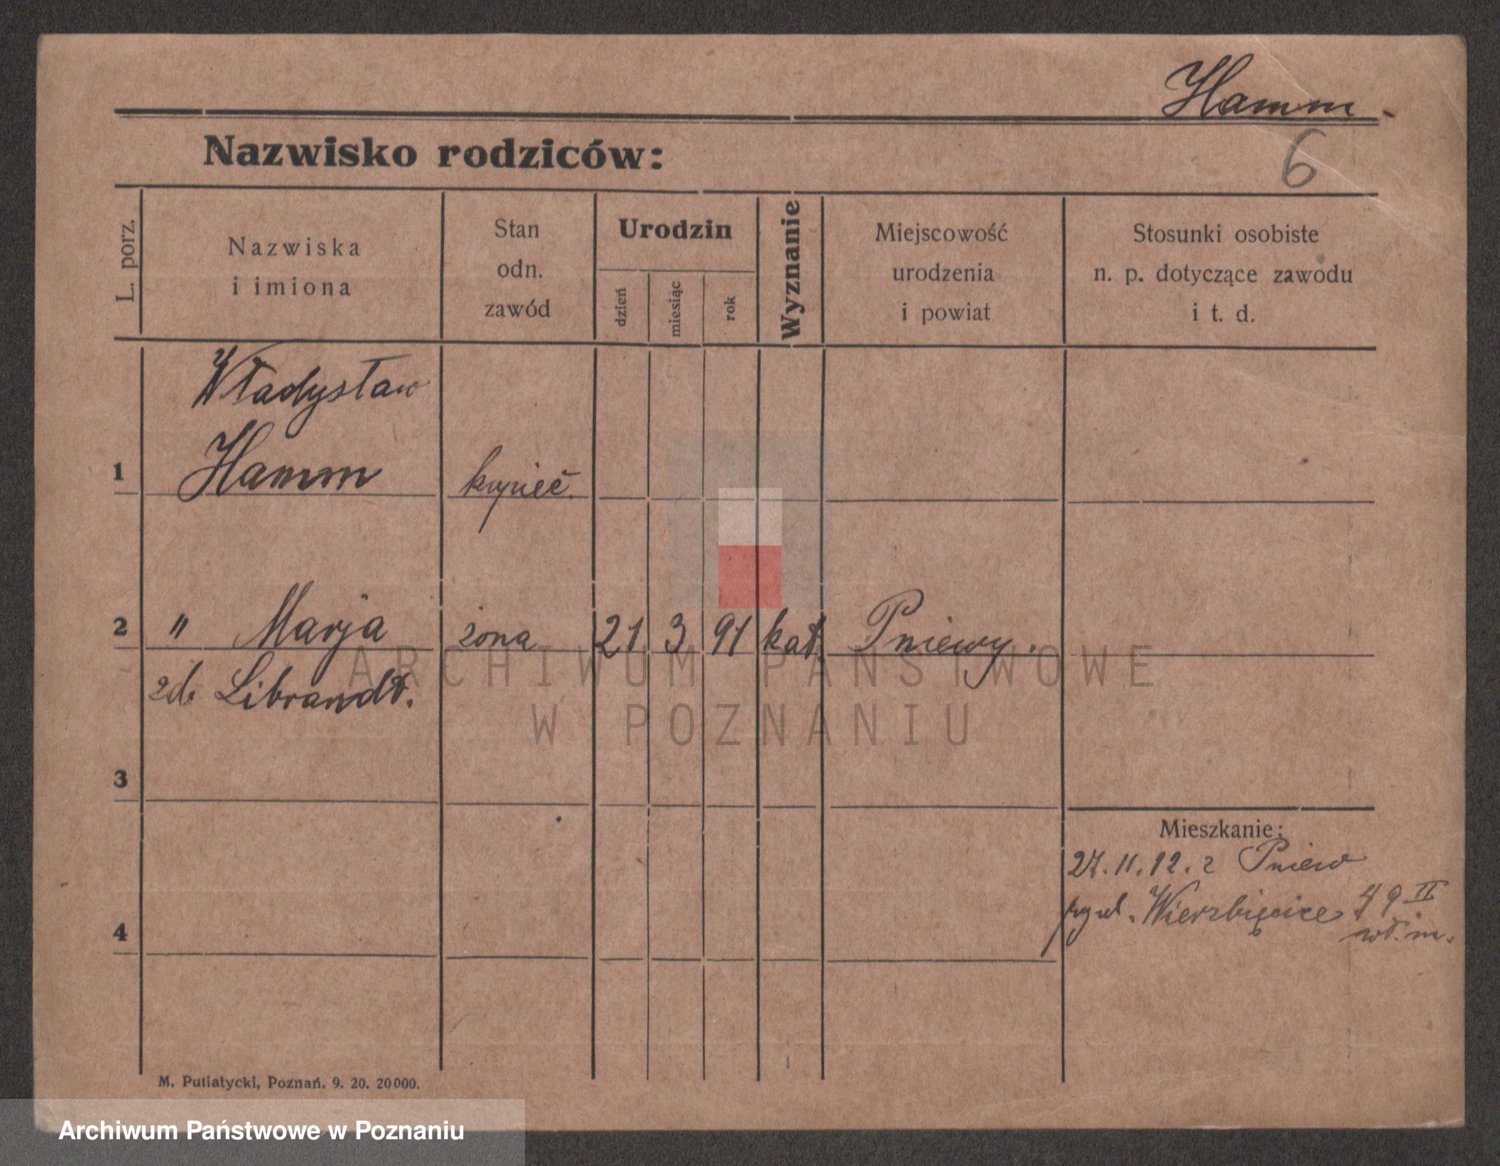 Hamm.
6
Nazwisko rodziców:
L. porz.
Nazwiska
i imiona
Stan
odn.
zawód
Urodzin
dzień
miesiąc
rok
Wyznanie
Miejscowość
urodzenia
i powiat
Stosunki osobiste
n. p. dotyczące zawodu
i t. d.
Władysław
1 Hamm kupiec.
2 " Marja żona 21 3 91 kat. Pniewy.
Librandt.
3
Mieszkanie:
27. 11. 12. z Pniew
Wierzbięcice 49 II
4
M. Putiatycki, Poznań. 9. 20. 20000.
ARCHIWUM PAŃSTWOWE
W POZNANIU
Archiwum Państwowe w Poznaniu